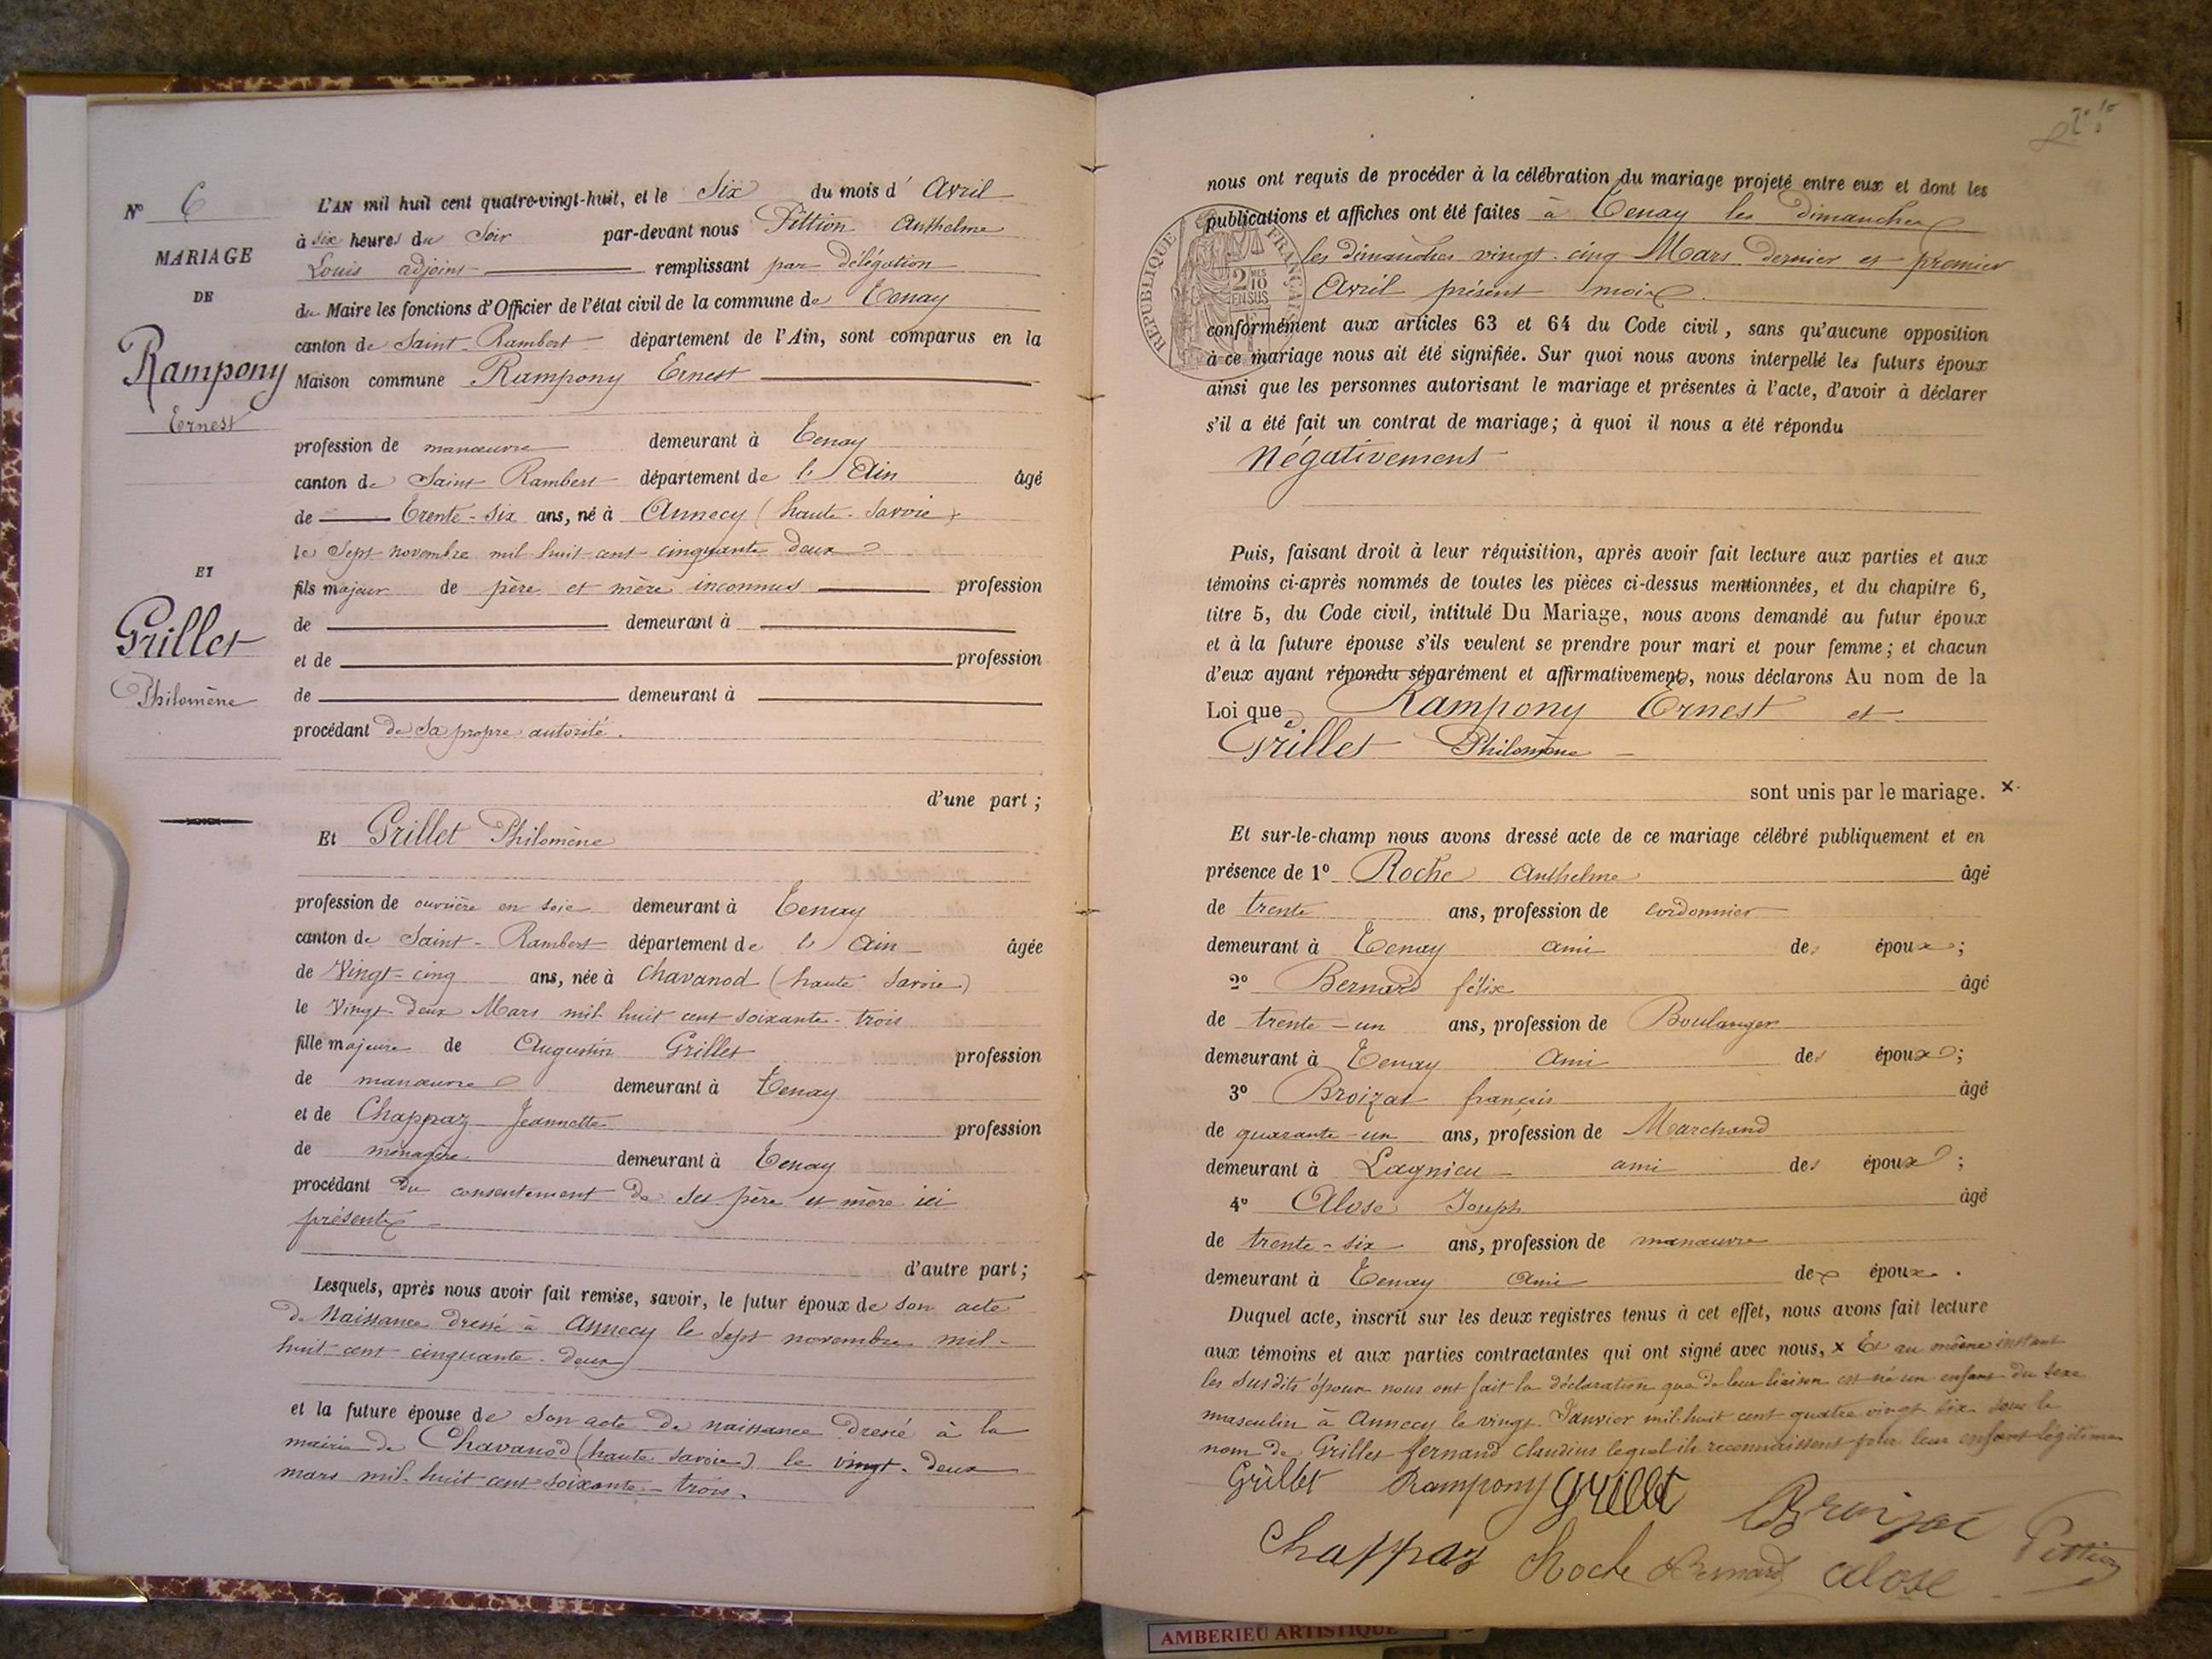 N° 6
MARIAGE
DE
Rampony
Ernest
ET
Grillet
Philomène
L'AN mil huit cent quatre-vingt-huit, et le Six du mois d'Avril
à six heures du Soir par-devant nous Pittion Anthelme
Louis adjoint remplissant par délégation
du Maire les fonctions d'Officier de l'état civil de la commune de Tenay
canton de Saint-Rambert département de l'Ain, sont comparus en la
Maison commune Rampony Ernest
profession de manœuvre demeurant à Tenay
canton de Saint Rambert département de l'Ain âgé
de Trente-Six ans, né à Annecy (haute-Savoie)
le Sept novembre mil huit cent cinquante deux
fils majeur de père et mère inconnus profession
de demeurant à
et de profession
de demeurant à
procédant de Sa propre autorité.
d'une part ;
Et Grillet Philomène
profession de ouvrière en soie demeurant à Tenay
canton de Saint-Rambert département de l'Ain âgée
de Vingt-cinq ans, née à Chavanod (haute Savoie)
le Vingt-deux Mars mil huit cent soixante-trois
fille majeure de Augustin Grillet profession
de manœuvre demeurant à Tenay
et de Chappaz Jeannette profession
de ménagère demeurant à Tenay
procédant du consentement de ses père et mère ici
présents
d'autre part ;
Lesquels, après nous avoir fait remise, savoir, le futur époux de son acte
de Naissance dressé à Annecy le Sept novembre mil-
huit cent cinquante-deux
et la future épouse de son acte de naissance dressé à la
mairie de Chavanod (haute Savoie) le vingt-deux
mars mil-huit cent soixante-trois.
nous ont requis de procéder à la célébration du mariage projeté entre eux et dont les
publications et affiches ont été faites à Tenay les dimanches
les dimanches vingt-cinq Mars dernier et premier
Avril présent mois.
RÉPUBLIQUE FRANÇAISE
2 MES
10
EN SUS
conformément aux articles 63 et 64 du Code civil, sans qu'aucune opposition
à ce mariage nous ait été signifiée. Sur quoi nous avons interpellé les futurs époux
ainsi que les personnes autorisant le mariage et présentes à l'acte, d'avoir à déclarer
s'il a été fait un contrat de mariage; à quoi il nous a été répondu
Négativement
Puis, faisant droit à leur réquisition, après avoir fait lecture aux parties et aux
témoins ci-après nommés de toutes les pièces ci-dessus mentionnées, et du chapitre 6,
titre 5, du Code civil, intitulé Du Mariage, nous avons demandé au futur époux
et à la future épouse s'ils veulent se prendre pour mari et pour femme; et chacun
d'eux ayant répondu séparément et affirmativement, nous déclarons Au nom de la
Loi que Rampony Ernest et
Grillet Philomène
sont unis par le mariage. x.
Et sur-le-champ nous avons dressé acte de ce mariage célébré publiquement et en
présence de 1° Roche Anthelme âgé
de trente ans, profession de cordonnier
demeurant à Tenay ami des époux ;
2° Bernard félix âgé
de trente-un ans, profession de Boulanger
demeurant à Tenay Ami des époux ;
3° Broizat françois âgé
de quarante-un ans, profession de Marchand
demeurant à Lagnieu ami des époux ;
4° Alose Joseph âgé
de trente-six ans, profession de manœuvre
demeurant à Tenay Ami des époux.
Duquel acte, inscrit sur les deux registres tenus à cet effet, nous avons fait lecture
aux témoins et aux parties contractantes qui ont signé avec nous, x Et au même instant
les Susdits époux nous ont fait la déclaration que de leur liaison est né un enfant du sexe
masculin à Annecy le vingt Janvier mil-huit cent quatre vingt six sous le
nom de Grillet fernand Claudius lequel ils reconnaissent pour leur enfant légitime
Grillet Rampony Grillet Broizat
Chappaz Roche Bernard Alose Pittion
AMBERIEU ARTISTIQUE